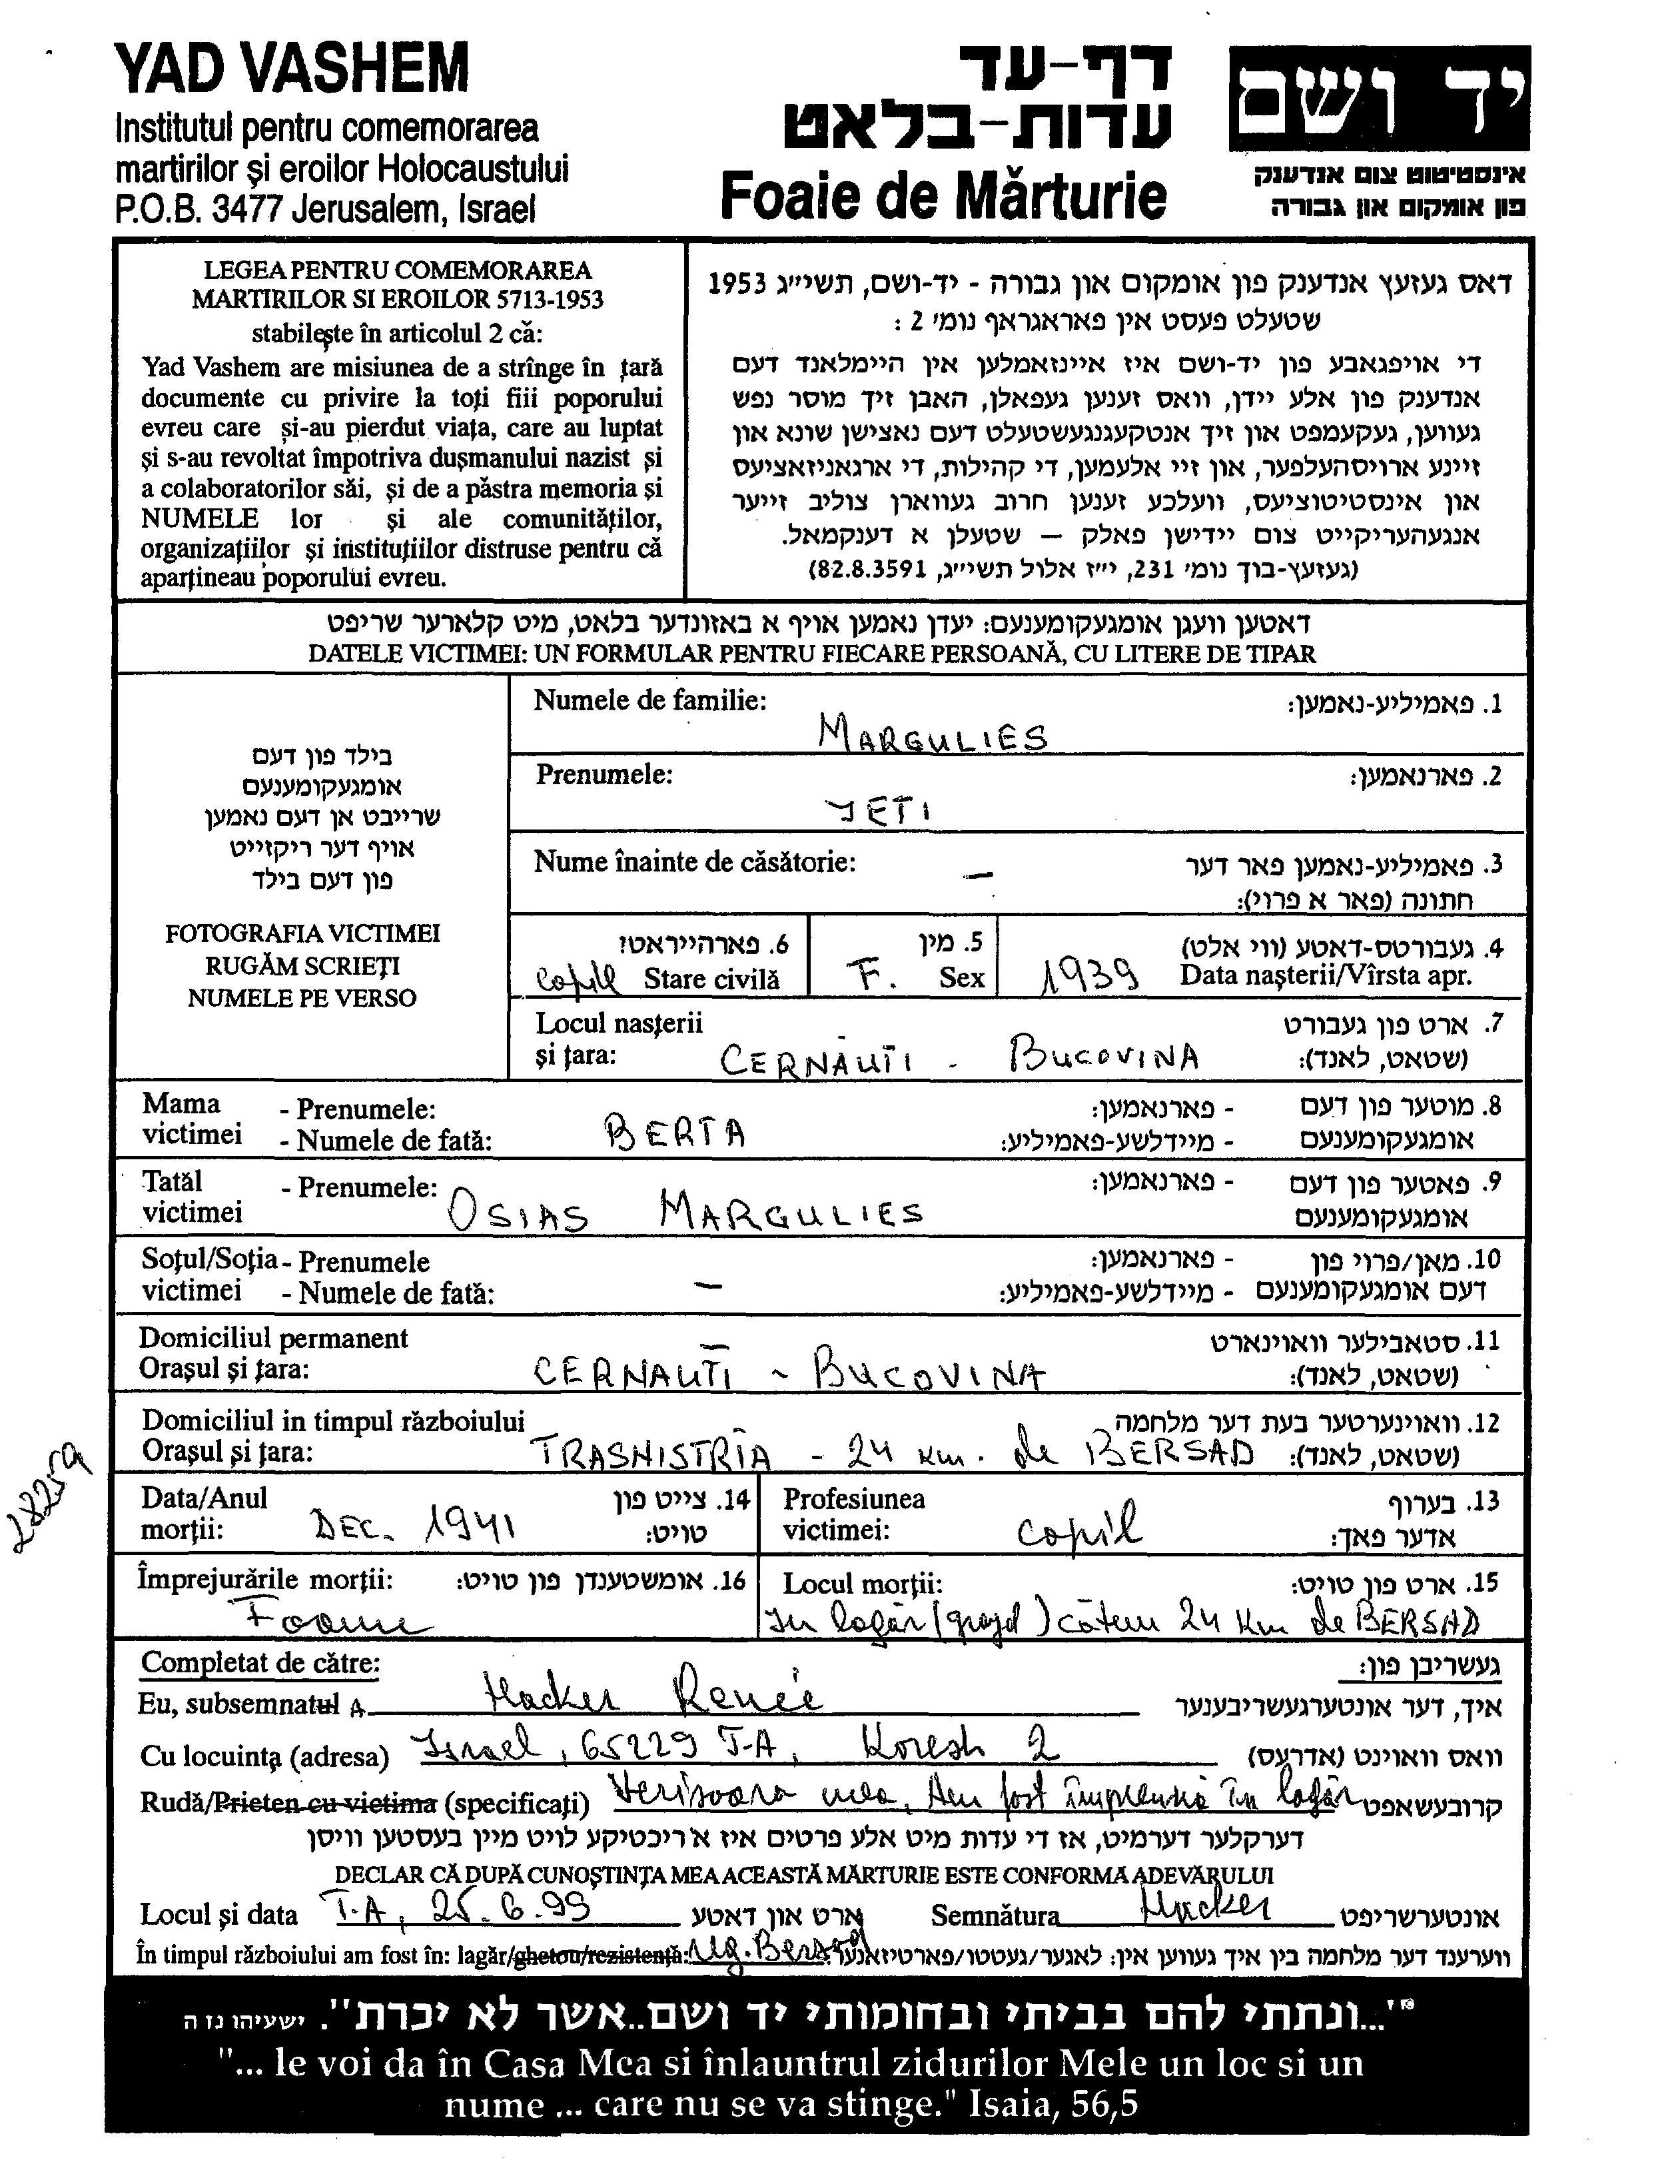 YAD VASHEM
Institutul pentru comemorarea
martirilor și eroilor Holocaustului
P.O.B. 3477 Jerusalem, Israel
דף-עד
עדות-בלאט
Foaie de Mărturie
יד ושם
אינסטיטוט צום אנדענק
פון אומקום און גבורה
LEGEA PENTRU COMEMORAREA
MARTIRILOR SI EROILOR 5713-1953
stabilește în articolul 2 că:
Yad Vashem are misiunea de a strînge în țară
documente cu privire la toți fiii poporului
evreu care și-au pierdut viața, care au luptat
și s-au revoltat împotriva dușmanului nazist și
a colaboratorilor săi, și de a păstra memoria și
NUMELE lor și ale comunităților,
organizațiilor și instituțiilor distruse pentru că
aparțineau poporului evreu.
דאס געזעץ אנדענק פון אומקום און גבורה - יד-ושם, תשי״ג 1953
שטעלט פעסט אין פאראגראף נומ׳ 2 :
די אויפגאבע פון יד-ושם איז איינזאמלען אין היימלאנד דעם
אנדענק פון אלע יידן, וואס זענען געפאלן, האבן זיך מוסר נפש
געווען, געקעמפט און זיך אנטקעגנגעשטעלט דעם נאצישן שונא און
זיינע ארויסהעלפער, און זיי אלעמען, די קהילות, די ארגאניזאציעס
און אינסטיטוציעס, וועלכע זענען חרוב געווארן צוליב זייער
אנגעהעריקייט צום יידישן פאלק — שטעלן א דענקמאל.
(געזעץ-בוך נומ׳ 231, י״ז אלול תשי״ג, 82.8.3591)
דאטען וועגן אומגעקומענעם: יעדן נאמען אויף א באזונדער בלאט, מיט קלארער שריפט
DATELE VICTIMEI: UN FORMULAR PENTRU FIECARE PERSOANĂ, CU LITERE DE TIPAR
בילד פון דעם
אומגעקומענעם
שרייבט אן דעם נאמען
אויף דער ריקזייט
פון דעם בילד
FOTOGRAFIA VICTIMEI
RUGĂM SCRIEȚI
NUMELE PE VERSO
Numele de familie: 1. פאמיליע-נאמען:
MARGULIES
Prenumele: 2. פארנאמען:
JETI
Nume înainte de căsătorie: – 3. פאמיליע-נאמען פאר דער
חתונה (פאר א פרוי):
6. פארהייראט? 5. מין 4. געבורטס-דאטע (ווי אלט)
copil Stare civilă F. Sex 1939 Data nașterii/Vîrsta apr.
Locul nașterii 7. ארט פון געבורט
și țara: CERNĂUTI - BUCOVINA (שטאט, לאנד):
Mama - Prenumele: - פארנאמען: 8. מוטער פון דעם
victimei - Numele de fată: BERTA - מיידלשע-פאמיליע: אומגעקומענעם
Tatăl - Prenumele: - פארנאמען: 9. פאטער פון דעם
victimei OSIAS MARGULIES אומגעקומענעם
Soțul/Soția - Prenumele - פארנאמען: 10. מאן/פרוי פון
victimei - Numele de fată: – - מיידלשע-פאמיליע: דעם אומגעקומענעם
Domiciliul permanent 11. סטאבילער וואוינארט
Orașul și țara: CERNAUTI - BUCOVINA (שטאט, לאנד):
Domiciliul in timpul războiului 12. וואוינערטער בעת דער מלחמה
Orașul și țara: TRASNISTRIA - 24 km. de BERSAD (שטאט, לאנד):
28259
Data/Anul 14. צייט פון Profesiunea 13. בערוף
morții: DEC. 1941 טויט: victimei: copil אדער פאך:
Împrejurările morții: 16. אומשטענדן פון טויט: Locul morții: 15. ארט פון טויט:
Foame In lagăr (grajd) cătun 24 Km de BERSAD
Completat de către: געשריבן פון:
Eu, subsemnatul A Hacker Renée איך, דער אונטערגעשריבענער
Cu locuința (adresa) Israel, 65229 T-A, Koresh 2 וואס וואוינט (אדרעס)
Rudă/Prieten cu victima (specificați) Verișoara mea, Am fost împreună în lagăr קרובעשאפט
דערקלער דערמיט, אז די עדות מיט אלע פרטים איז א ריכטיקע לויט מיין בעסטען וויסן
DECLAR CĂ DUPĂ CUNOȘTINȚA MEA ACEASTĂ MĂRTURIE ESTE CONFORMA ADEVĂRULUI
Locul și data T-A, 25.6.99 ארט און דאטע Semnătura Hacker אונטערשריפט
În timpul războiului am fost în: lagăr/ghetou/rezistență: Ug. Bersad ווערענד דער מלחמה בין איך געווען אין: לאגער/געטטו/פארטיזאנער
"...ונתתי להם בביתי ובחומותי יד ושם..אשר לא יכרת". ישעיהו נז ה
"... le voi da în Casa Mea si înlauntrul zidurilor Mele un loc si un
nume ... care nu se va stinge." Isaia, 56,5